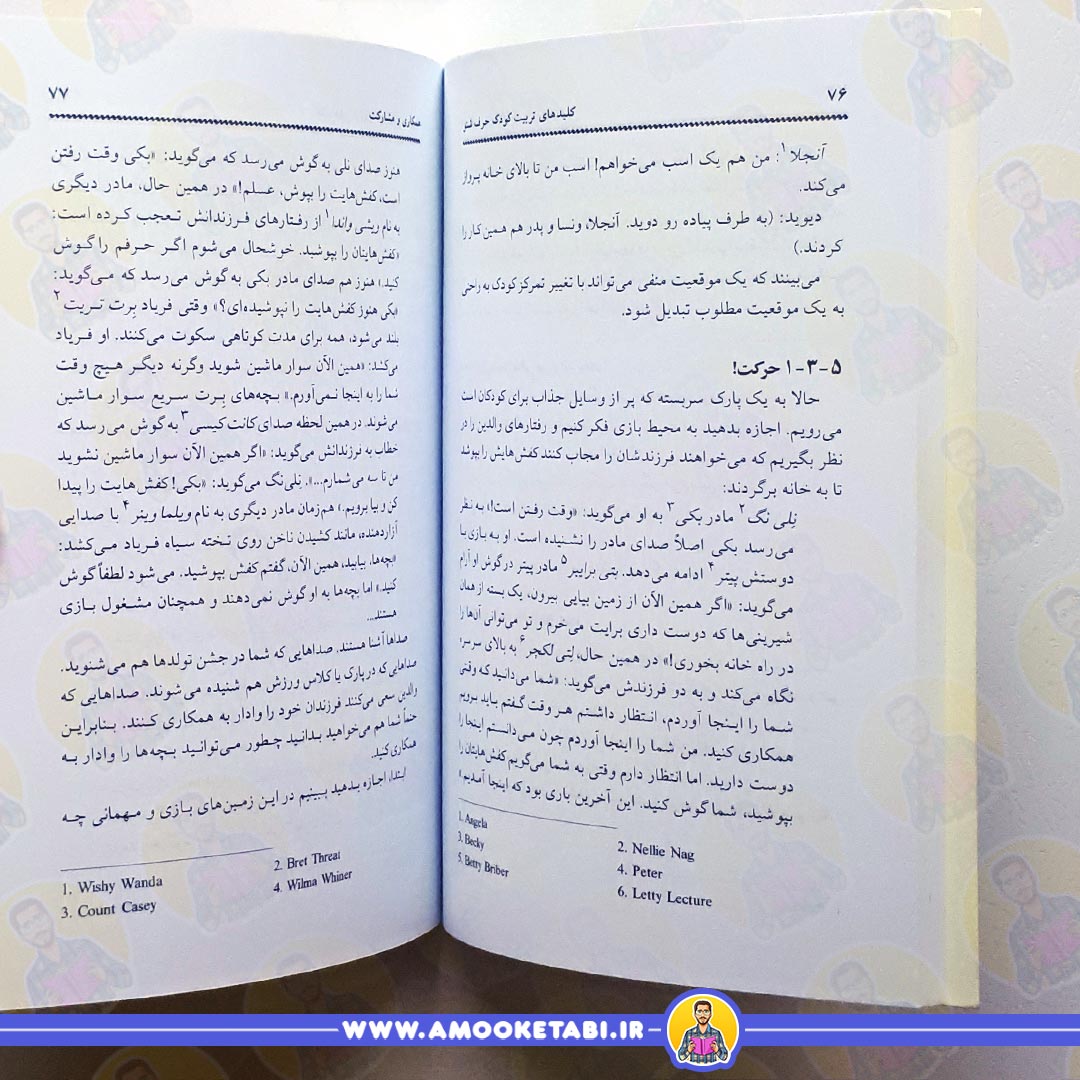 ۷۶
کلیدهای تربیت کودک حرف شنو
آنجلا۱: من هم یک اسب می‌خواهم! اسب من تا بالای خانه پرواز
می‌کند.
دیوید: (به طرف پیاده رو دوید. آنجلا، ونسا و پدر هم همین کار را
کردند.)
می‌بینند که یک موقعیت منفی می‌تواند با تغییر تمرکز کودک به راحتی
به یک موقعیت مطلوب تبدیل شود.
۵-۳-۱ حرکت!
حالا به یک پارک سربسته که پر از وسایل جذاب برای کودکان است
می‌رویم. اجازه بدهید به محیط بازی فکر کنیم و رفتارهای والدین را در
نظر بگیریم که می‌خواهند فرزندشان را مجاب کنند کفش‌هایش را بپوشد
تا به خانه برگردند:
نِلی نگ۲ مادر بکی۳ به او می‌گوید: «وقت رفتن است!» به نظر
می‌رسد بکی اصلاً صدای مادر را نشنیده است. او به بازی با
دوستش پیتر۴ ادامه می‌دهد. بتی برایبر۵ مادر پیتر در گوش او آرام
می‌گوید: «اگر همین الآن از زمین بیایی بیرون، یک بسته از همان
شیرینی‌ها که دوست داری برایت می‌خرم و تو می‌توانی آن‌ها را
در راه خانه بخوری!» در همین حال، لِتی لکچر۶ به بالای سرسره
نگاه می‌کند و به دو فرزندش می‌گوید: «شما می‌دانید که وقتی
شما را اینجا آوردم، انتظار داشتم هر وقت گفتم باید برویم
همکاری کنید. من شما را اینجا آوردم چون می‌دانستم اینجا را
دوست دارید. اما انتظار دارم وقتی به شما می‌گویم کفش‌هایتان را
بپوشید، شما گوش کنید. این آخرین باری بود که اینجا آمدیم.»
1. Angela
2. Nellie Nag
3. Becky
4. Peter
5. Betty Briber
6. Letty Lecture
همکاری و مشارکت
۷۷
هنوز صدای نلی به گوش می‌رسد که می‌گوید: «بکی وقت رفتن
است، کفش‌هایت را بپوش، عسلم!» در همین حال، مادر دیگری
به نام ریشی واندا۱ از رفتارهای فرزندانش تعجب کرده است:
«کفش‌هایتان را بپوشید. خوشحال می‌شوم اگر حرفم را گوش
کنید.» هنوز هم صدای مادر بکی به گوش می‌رسد که می‌گوید:
«بکی هنوز کفش‌هایت را نپوشیده‌ای؟» وقتی فریاد بِرت تریت۲
بلند می‌شود، همه برای مدت کوتاهی سکوت می‌کنند. او فریاد
می‌کند: «همین الآن سوار ماشین شوید وگرنه دیگر هیچ وقت
شما را به اینجا نمی‌آورم.» بچه‌های بِرت سریع سوار ماشین
می‌شوند. در همین لحظه صدای کانت کیسی۳ به گوش می‌رسد که
خطاب به فرزندانش می‌گوید: «اگر همین الآن سوار ماشین نشوید
من تا سه می‌شمارم...». نِلی‌نگ می‌گوید: «بکی! کفش‌هایت را پیدا
کن و بیا برویم.» هم‌زمان مادر دیگری به نام ویلما وینر۴ با صدایی
آزاردهنده، مانند کشیدن ناخن روی تخته سیاه فریاد می‌کشد:
«بچه‌ها، بیایید، همین الآن، گفتم کفش بپوشید. می‌شود لطفاً گوش
کنید.» اما بچه‌ها به او گوش نمی‌دهند و همچنان مشغول بازی
هستند...
صداها آشنا هستند. صداهایی که شما در جشن تولدها هم می‌شنوید.
صداهایی که در پارک یا کلاس ورزش هم شنیده می‌شوند. صداهایی که
والدین سعی می‌کنند فرزندان خود را وادار به همکاری کنند. بنابراین
حتماً شما هم می‌خواهید بدانید چطور می‌توانید بچه‌ها را وادار به
همکاری کنید.
ابتدا، اجازه بدهید ببینیم در این زمین‌های بازی و مهمانی چه
1. Wishy Wanda
2. Bret Threat
3. Count Casey
4. Wilma Whiner
WWW.AMOOKETABI.IR